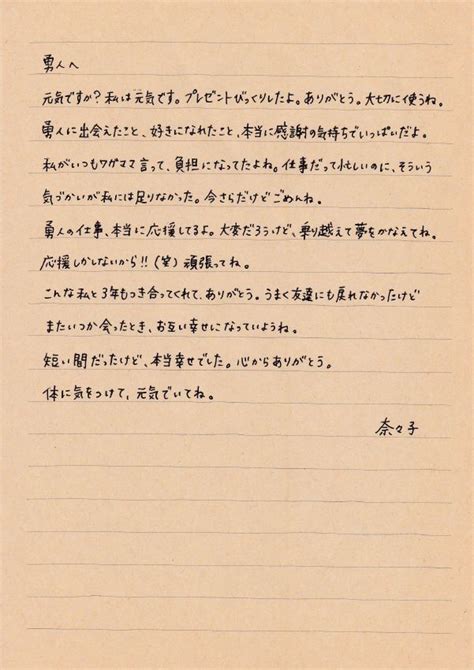 勇人へ
元気ですか？私は元気です。プレゼントびっくりしたよ。ありがとう。大切に使うね。
勇人に出会えたこと、好きになれたこと、本当に感謝の気持ちでいっぱいだよ。
私がいつもワガママ言って、負担になってたよね。仕事だって忙しいのに、そういう
気づかいが私には足りなかった。今さらだけどごめんね。
勇人の仕事、本当に応援してるよ。大変だろうけど、乗り越えて夢をかなえてね。
応援しかしないから!!(笑)頑張ってね。
こんな私と3年もつき合ってくれて、ありがとう。うまく友達にも戻れなかったけど
またいつか会ったとき、お互い幸せになっていようね。
短い間だったけど、本当幸せでした。心からありがとう。
体に気をつけて、元気でいてね。
奈々子